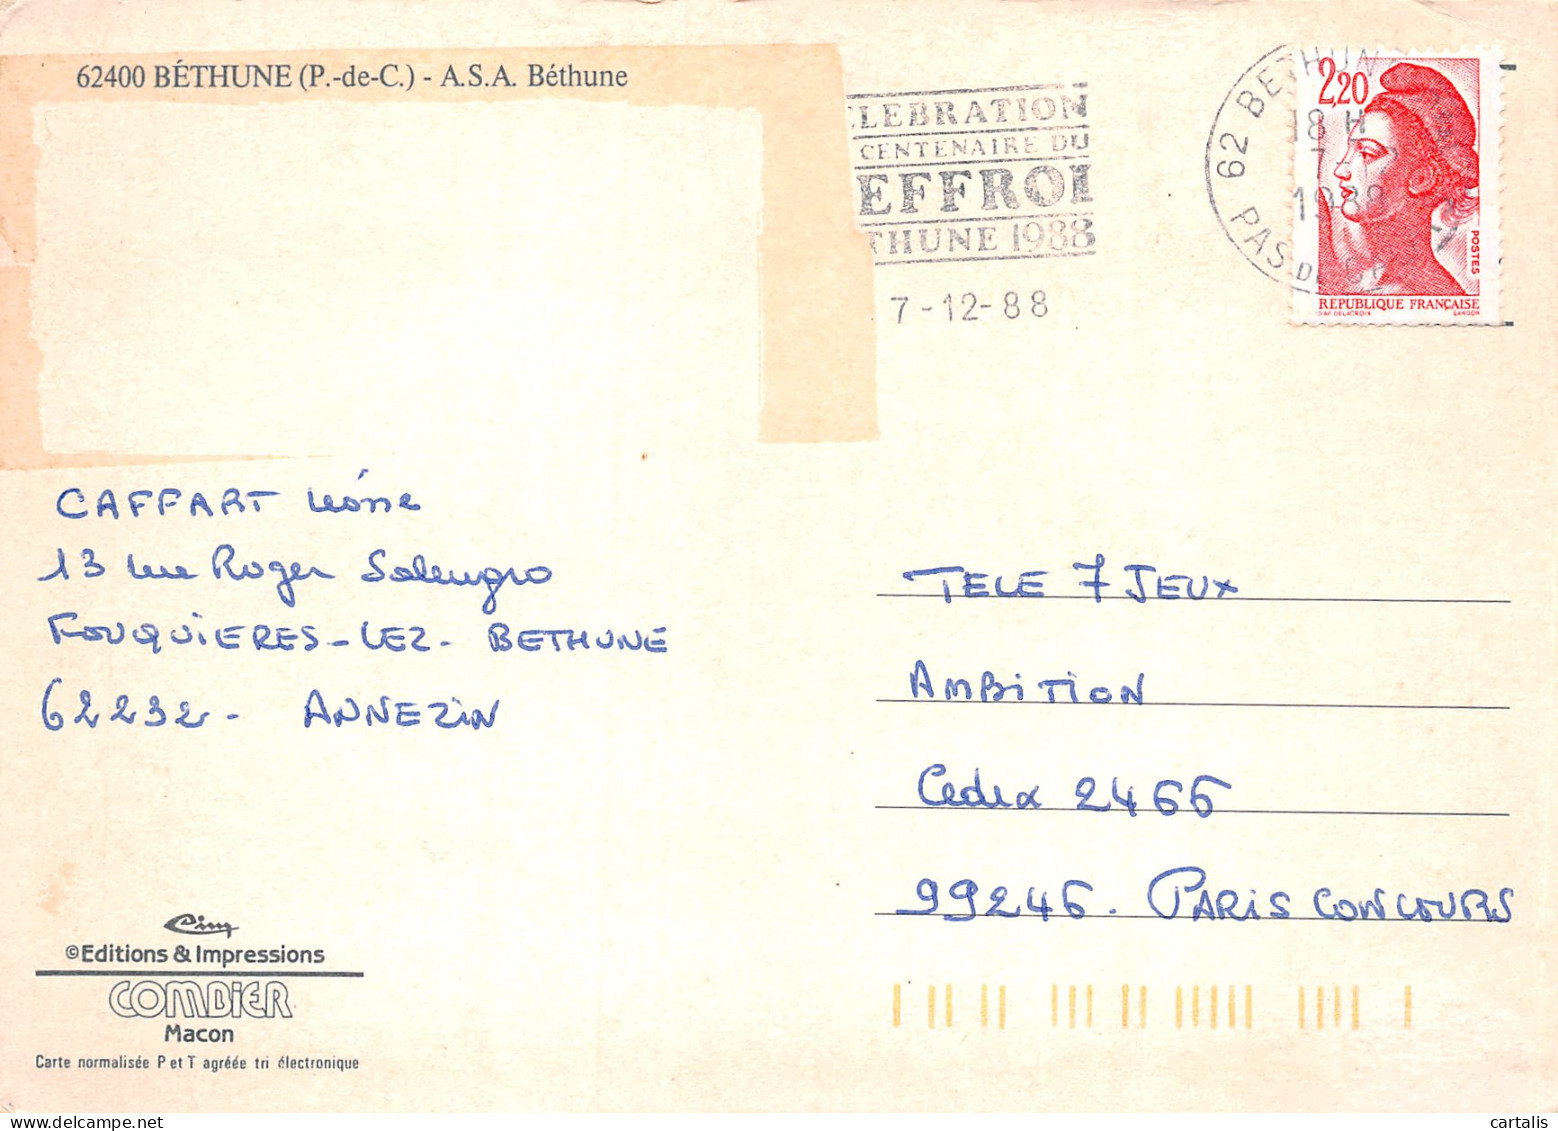 62400 BÉTHUNE (P.-de-C.) - A.S.A. Béthune
ÉLEBRATION
CENTENAIRE DU
EFFROI
THUNE 1988
7-12-88
62 BETHUN
18 H
7-
1988
PAS DE
2,20
POSTES
REPUBLIQUE FRANÇAISE
D'AP. DELACROIX GANDON
CAFFART Léone
13 rue Roger Salengro
FOUQUIERES-LEZ- BETHUNE
62232- ANNEZIN
TELE 7 JEUX
AMBITION
Cedex 2466
99246. PARIS CONCOURS
Cim
©Editions & Impressions
COMBIER
Macon
Carte normalisée P et T agréée tri électronique
cartalis